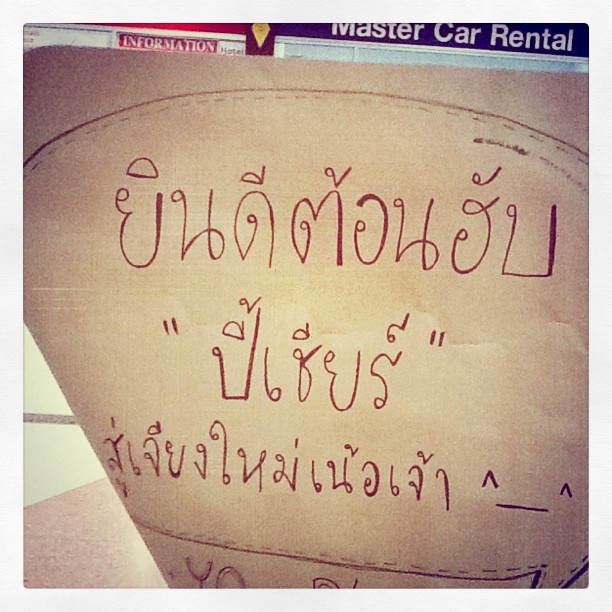 Master Car Rental
INFORMATION
Hotel
ยินดีต้อนฮับ
" ปี้เชียร์ "
สู่เจียงใหม่เน้อเจ้า ^_^